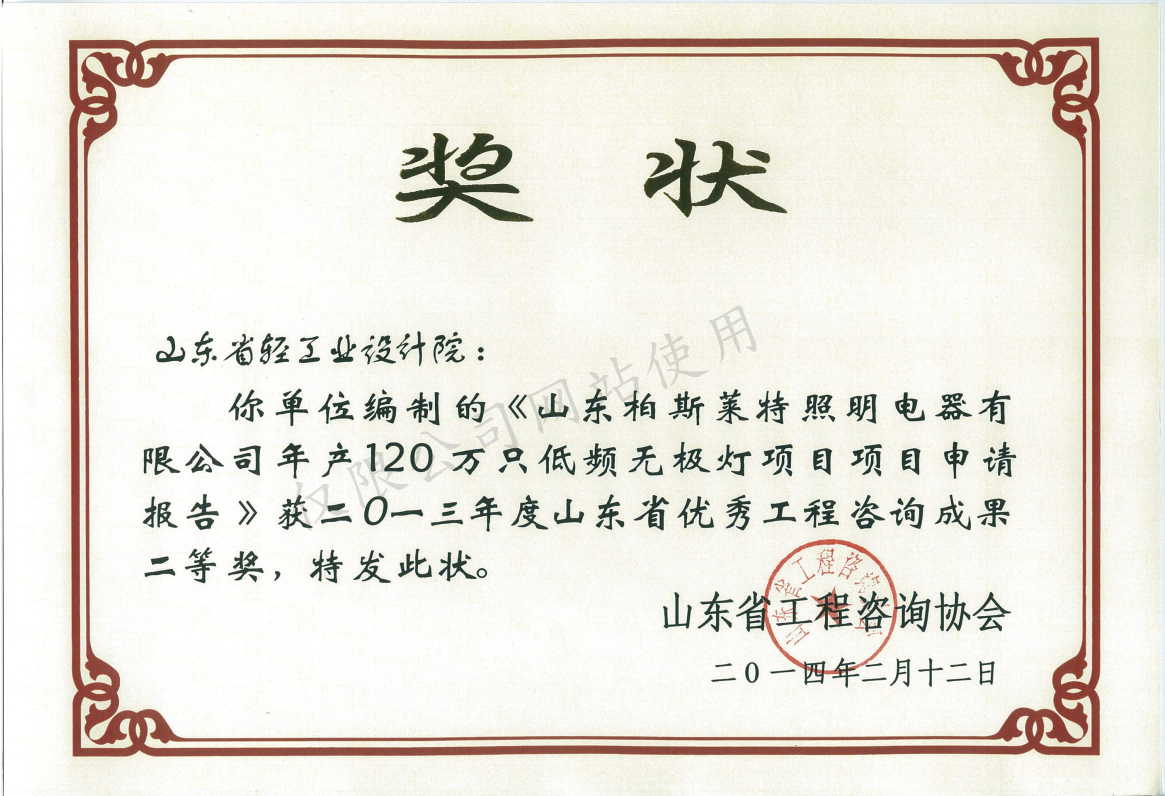 奖状
山东省轻工业设计院：
你单位编制的《山东柏斯莱特照明电器有
限公司年产120万只低频无极灯项目项目申请
报告》获二〇一三年度山东省优秀工程咨询成果
二等奖，特发此状。
山东省工程咨询协会
二〇一四年二月十二日
仅限公司网站使用
山东省工程咨询协会